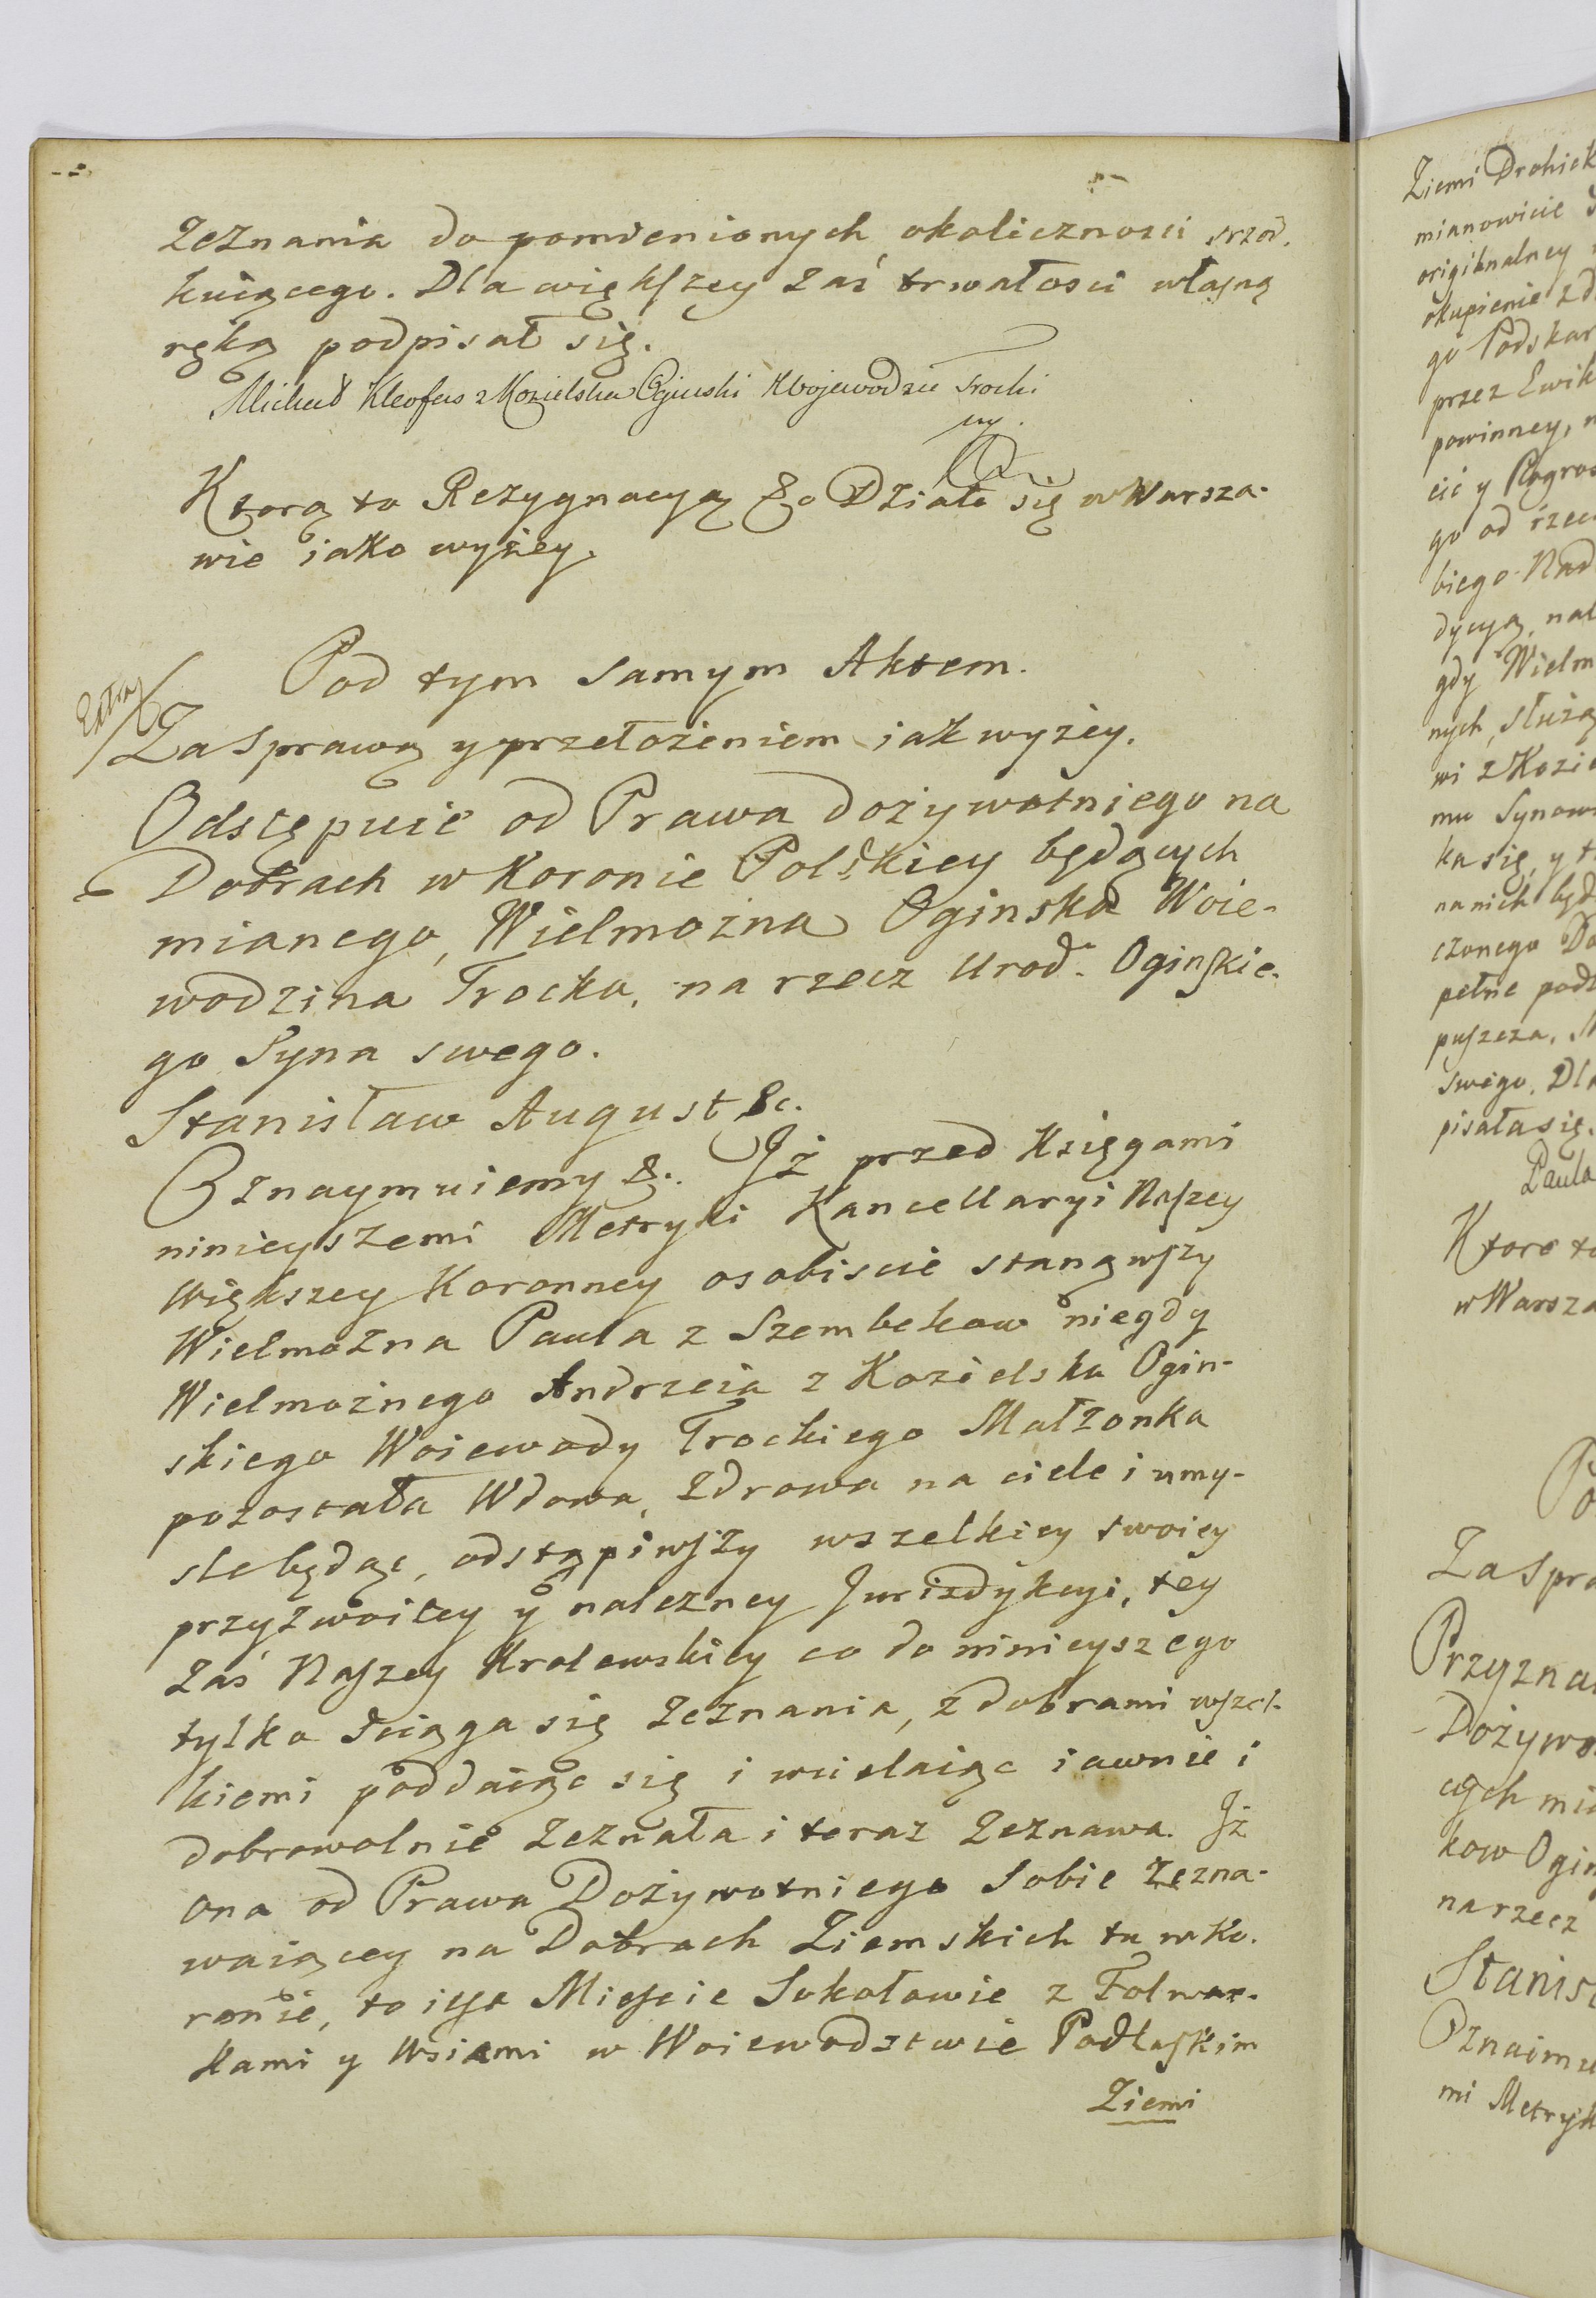 Zeznania do pomienionych okoliczności srzod.
kuiącego. Dla większey Zaś trwałości własną
ręką podpisał się.
Michał Kleofas z Kozielska Oginski Wojewodzic Trocki
mp.
Ktorą to Rezygnacyą &c Działo się w Warsza-
wie iako wyżey.
Pod tym samym Aktem.
Extra
Za Sprawą y przełożeniem iak wyżey.
Odstępuie od Prawa dożywotniego na
Dobrach w Koronie Polskiey będących
mianego, Wielmożna Oginska Woie-
wodzina Trocka, na rzecz Urod. Oginskie-
go Syna swego.
Stanisław August &c.
Oznaymuiemy &. Jż przed Księgami
ninieyszemi Metryki Kancellaryi Naszey
Większey Koronney osobiscie stanąwszy
Wielmożna Paula z Szembekow niegdy
Wielmożnego Andrzeia z Kozielska Ogin-
skiego Woiewody Trockiego Małżonka
pozostała Wdowa, Zdrowa na ciele i umy-
sle będąc, odstąpiwszy wszelkiey swoiey
przyzwoitey y należney Jurisdykcyi, tey
Zaś Naszey Krolewskiey co do ninieyszego
tylko sciąga się Zeznania, z dobrami wszel-
kiemi poddaiąc się i wcielaiąc iawnie i
dobrowolnie Zeznała i teraz Zeznawa. Jż
ona od Prawa Dożywotniego Sobie Zezna-
waiącey na Dobrach Ziemskich tu w Ko.
ronie, to iest Miescie Sokołowie z Folwar-
kami y Wsiami w Woiewodztwie Podlaskim
Ziemi
Ziemi Drohick
mianowicie
originalney
okupienie z d
go Podskar
przez Ewik
powinney, n
cić y Pogros
go od rzec
biego Nad
dycyą, nal
gdy Wielm
nych, służą
wi z Kozie
mu Synow
ka się, y t
na nich będ
czonego Do
pełne podz
puszcza, N
swego. Dla
pisała się.
Paula
Ktore to
w Warsza
Po
Za Spra
Przyzna
Dożywo
cych mia
kow Ogin
na rzecz
Stanisł
Oznaimu
mi Metryk